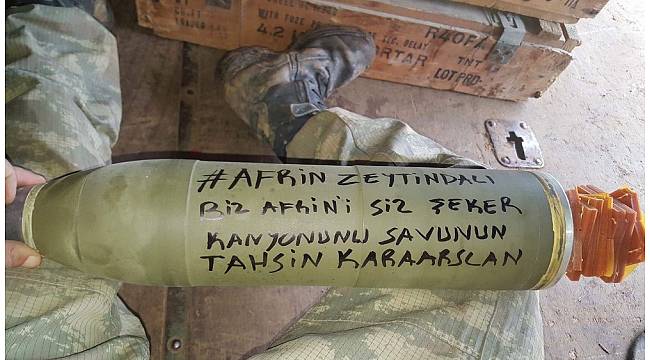 WITH FUZE
4.2
MORTAR
R40FA
TNT
LOT PRD-
#AFRİN ZEYTİNDALI
BİZ AFRİN'İ SİZ ŞEKER
KANYONUNU SAVUNUN
TAHSİN KARAARSLAN